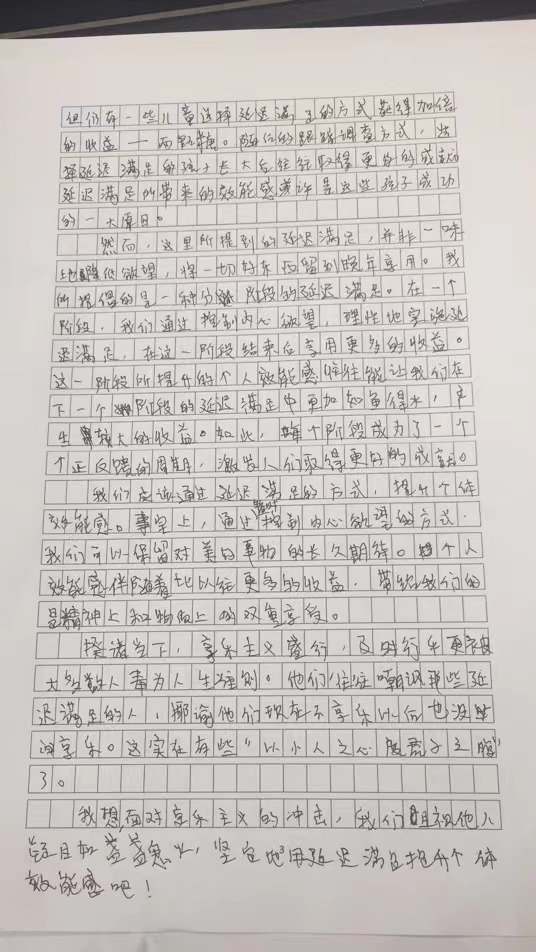 但仍有一些儿童选择延迟满足的方式获得加倍
的收益——两颗糖。随后的跟踪调查方式,选
择延迟满足的孩子长大后往往取得更好的成就
延迟满足所带来的效能感或许是这些孩子成功
的一大原因。
然而,这里所提到的延迟满足,并非一味
地降低欲望,将一切好东西留到晚年享用。我
所提倡的是一种分阶段的延迟满足。在一个
阶段,我们通过控制内心欲望,理性地实施延
迟满足,在这一阶段结束后享用更多的收益。
这一阶段所提升的个人效能感往往能让我们在
下一个阶段的延迟满足中更加如鱼得水,产
生较大的收益。如此,每个阶段成为了一个
个正反馈的周期,激发人们取得更好的成就。
我们应该通过延迟满足的方式,提升个体
效能感。事实上,通过暂时控制内心欲望的方式,
我们可以保留对美的事物的长久期待。个人
效能感伴随着比以往更多的收益,带给我们的
是精神上和物质上的双重享受。
揆诸当下,享乐主义盛行,及时行乐更被
大多数人奉为人生准则。他们往往嘲讽那些延
迟满足的人,揶揄他们现在不享乐以后也没时
间享乐。这实在有些“以小人之心度君子之腹”
了。
我想,面对享乐主义的冲击,我们且视他人
之疑目如盏盏鬼火,坚定地用延迟满足提升个体
效能感吧!